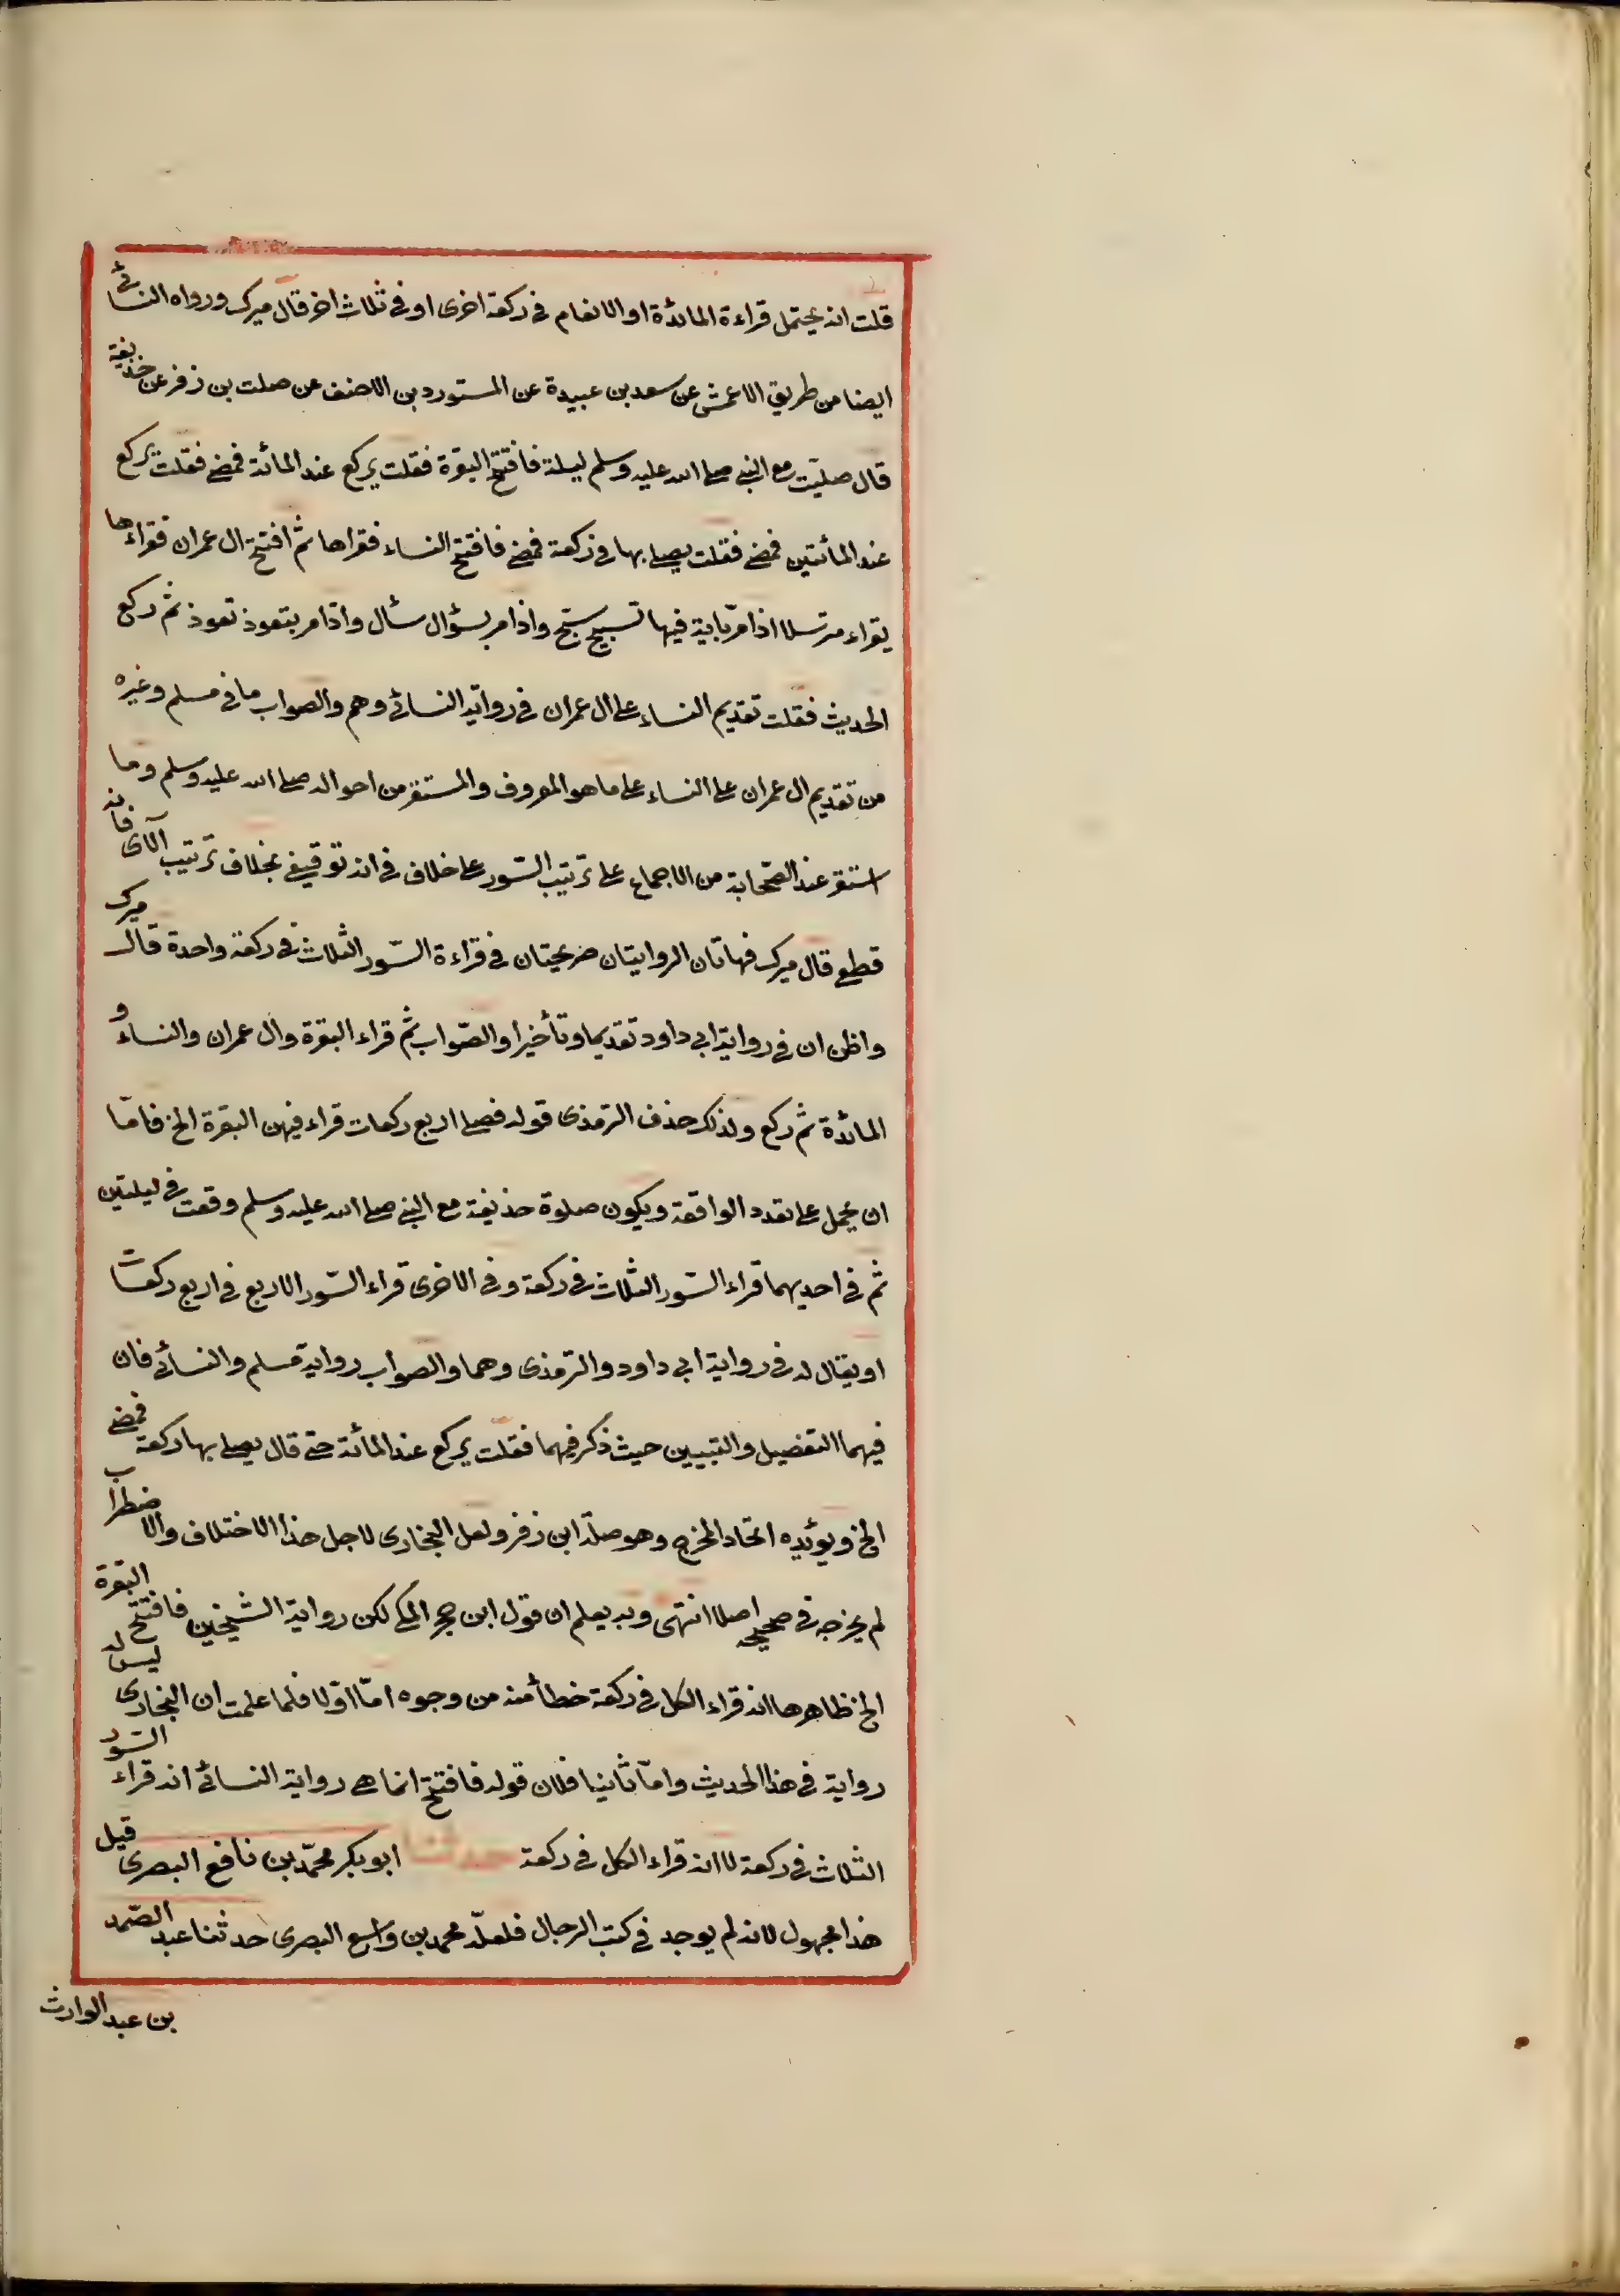 قلت انه يحتمل قراءة المائدة او الانعام في ركعة اخرى او في ثلاث اخر قال ميرك ورواه النسائي
ايضا من طريق الاعمش عن سعد بن عبيدة عن المستورد بن الاحنف عن صلت بن زفر عن حذيفة
قال صليت مع النبي صلى الله عليه وسلم ليلة فافتتح البقرة فقلت يركع عند المائة فمضى فقلت يركع
عند المائتين فمضى فقلت يصلي بها في ركعة فمضى فافتتح النساء فقراها ثم افتتح ال عمران فقراءها
يقراء مترسلا اذا مر باية فيها تسبيح سبح واذا مر بسؤال سئال واذا مر بتعوذ تعوذ ثم ركع
الحديث فقلت تقديم النساء على ال عمران في رواية النسائي وهم والصواب ما في مسلم وغيره
من تقديم ال عمران على النساء على ما هو المعروف والمستقر من احواله صلى الله عليه وسلم وما
استقر عند الصحابة من الاجماع على ترتيب السور على خلاف في انه توقيفي بخلاف ترتيب الآى فانه
قطعي قال ميرك فهاتان الروايتان صريحتان في قراءة السور الثلاث في ركعة واحدة قال ميرك
واظن ان في رواية ابي داود تقديما وتأخيرا والصواب ثم قراء البقرة وال عمران والنساء و
المائدة ثم ركع ولذلك حذف الترمذى قوله فصلى اربع ركعات قراء فيهن البقرة الخ فاما
ان يحمل على تعدد الواقعة ويكون صلوة حذيفة مع النبي صلى الله عليه وسلم وقعت في ليلتين
ثم في احديهما قراء السور الثلاث في ركعة وفي الاخرى قراء السور الاربع في اربع ركعات
او يقال له في رواية ابي داود والترمذى وهما والصواب رواية مسلم والنسائي فان
فيهما التفصيل والتبيين حيث ذكر فيهما فقلت يركع عند المائة حتى قال يصلي بها ركعة فمضى
الخ ويؤيده اتحاد المخرج وهو صلة ابن زفر ولعل البخارى لاجل هذا الاختلاف والاضطراب
لم يخرجه في صحيحه اصلا انتهى وبه يعلم ان قول ابن حجر المكي لكن رواية الشيخين فافتتح البقرة
الخ ظاهرها انه قراء الكل في ركعة خطأ منه من وجوه اما اولا فلما علمت ان البخارى ليس له
رواية في هذا الحديث واما ثانيا فلان قوله فافتتح انما هي رواية النسائي انه قراء السور
الثلاث في ركعة لا انه قراء الكل في ركعة حدثنا ابو بكر محمد بن نافع البصرى قيل
هذا مجهول لانه لم يوجد في كتب الرجال فلعله محمد بن واسع البصرى حدثنا عبد الصمد
بن عبد الوارث